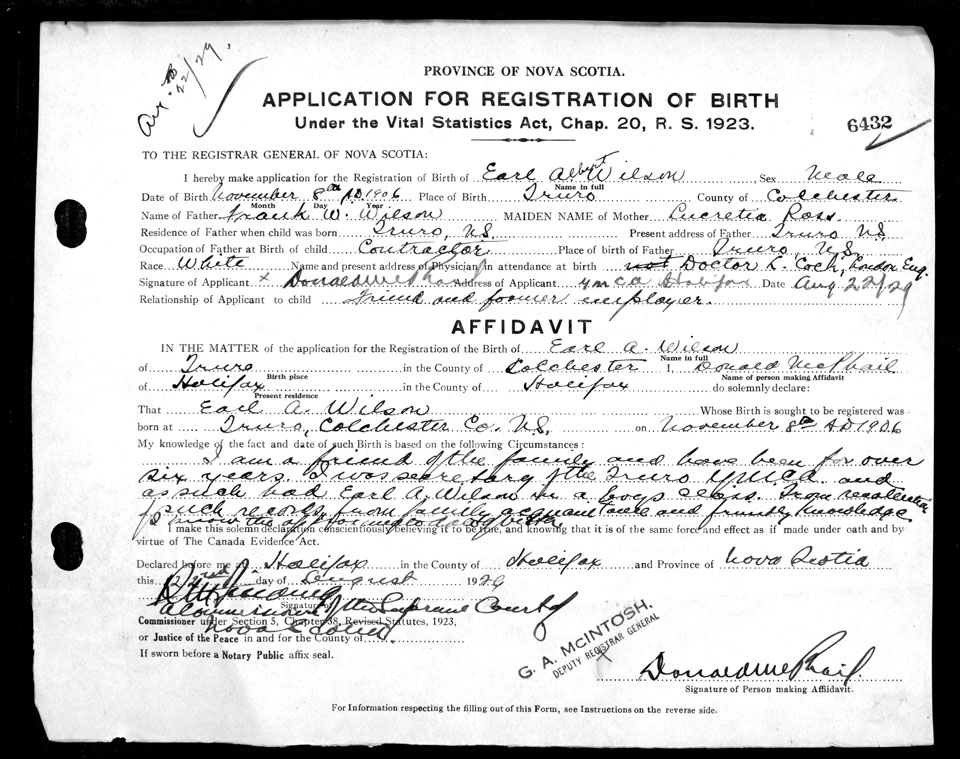 Aug. 22/29.
PROVINCE OF NOVA SCOTIA.
APPLICATION FOR REGISTRATION OF BIRTH
Under the Vital Statistics Act, Chap. 20, R. S. 1923.
6432
TO THE REGISTRAR GENERAL OF NOVA SCOTIA:
I hereby make application for the Registration of Birth of Earl Albert Wilson Sex Male
Name in full
Date of Birth November 8th AD 1906 Place of Birth Truro County of Colchester
Month Day Year
Name of Father Frank W. Wilson MAIDEN NAME of Mother Lucretia Ross
Residence of Father when child was born Truro, N.S. Present address of Father Truro N.S.
Occupation of Father at Birth of child Contractor Place of birth of Father Truro, N.S.
Race White Name and present address of Physician in attendance at birth Doctor L. Coch, London Eng.
Signature of Applicant x Donald McPhail Address of Applicant YMCA Halifax Date Aug 22/29
Relationship of Applicant to child Friend and former employer.
AFFIDAVIT
IN THE MATTER of the application for the Registration of the Birth of Earl A. Wilson
Name in full
of Truro in the County of Colchester I, Donald McPhail
Birth place Name of person making Affidavit
of Halifax in the County of Halifax do solemnly declare:
Present residence
That Earl A. Wilson Whose Birth is sought to be registered was
born at Truro, Colchester Co. N.S. on November 8th AD 1906
My knowledge of the fact and date of such Birth is based on the following Circumstances:
I am a friend of the family and have been for over
six years. I was secretary of the Truro YMCA and
as such had Earl A. Wilson in a boys class. From recollection
of such records, from family acquaintance and friendly knowledge
I know the of his date of birth
I make this solemn declaration conscientiously believing it to be true, and knowing that it is of the same force and effect as if made under oath and by
virtue of The Canada Evidence Act.
Declared before me at Halifax in the County of Halifax and Province of Nova Scotia
this 22nd day of August 1929
Signature
A Commissioner of the Supreme Court of
Commissioner under Section 5, Chapter 38, Revised Statutes, 1923,
Nova Scotia
or Justice of the Peace in and for the County of
If sworn before a Notary Public affix seal.
G. A. McINTOSH,
DEPUTY REGISTRAR GENERAL
x Donald McPhail.
Signature of Person making Affidavit.
For Information respecting the filling out of this Form, see Instructions on the reverse side.